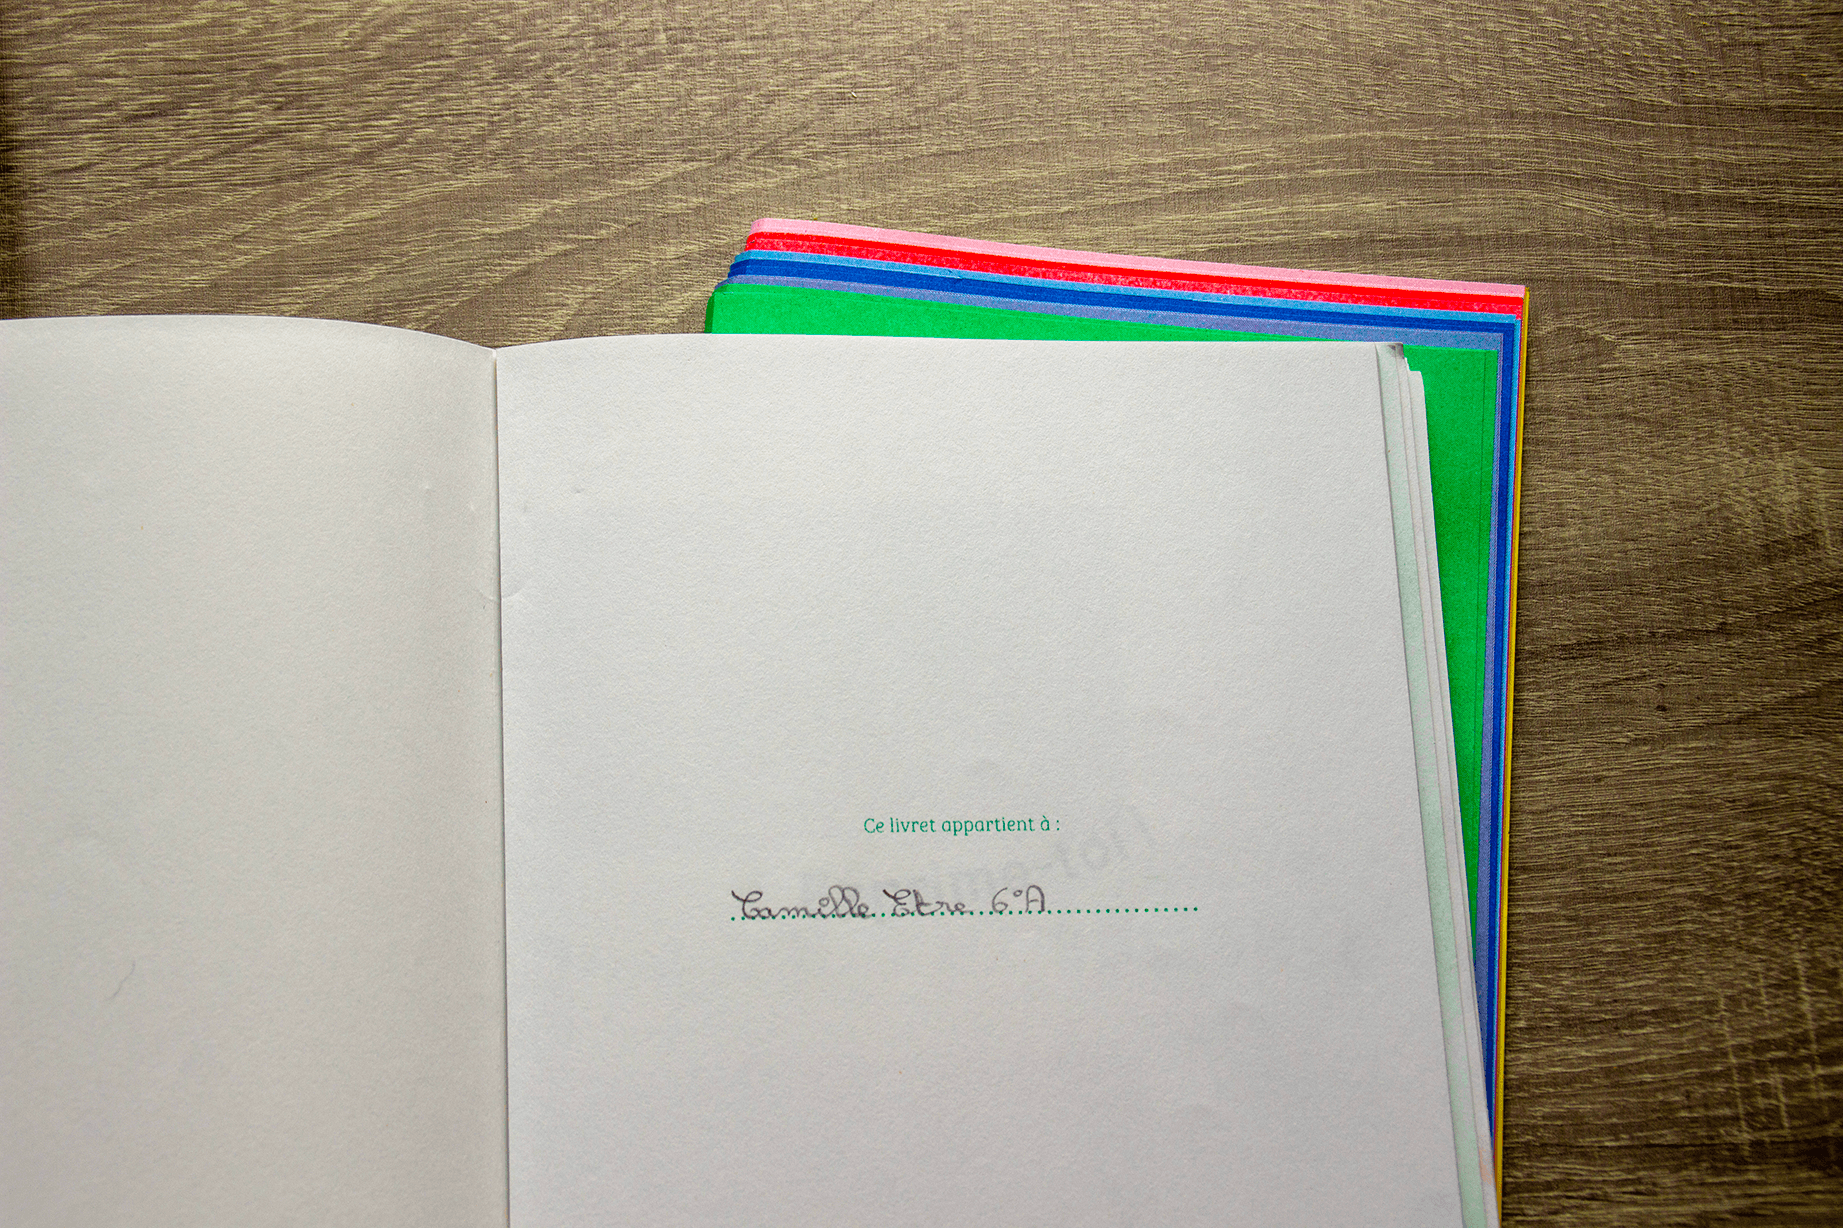 Ce livret appartient à :
Camille Etre 6°A